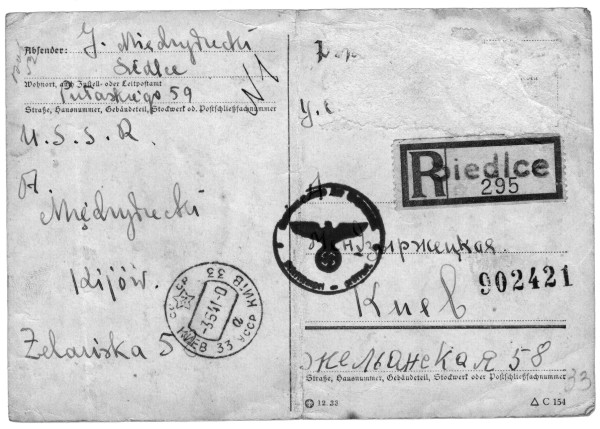 Absender: J. Międzyrzecki
Siedlce
Wohnort, auch Zustell- oder Leitpostamt
Pułaskiego 59
Straße, Hausnummer, Gebäudeteil, Stockwerk od. Postschließfachnummer
N 1
U.S.S.R.
A.
Międzyrzecki
Kijów.
Żelańska 5
КИЕВ 33 УССР КИЇВ 33
-3641-0
а
R Siedlce
295
А
Менджиржецкая.
902421
Киев
жельанская 58
Straße, Hausnummer, Gebäudeteil, Stockwerk oder Postschließfachnummer
33
12.38
C 154